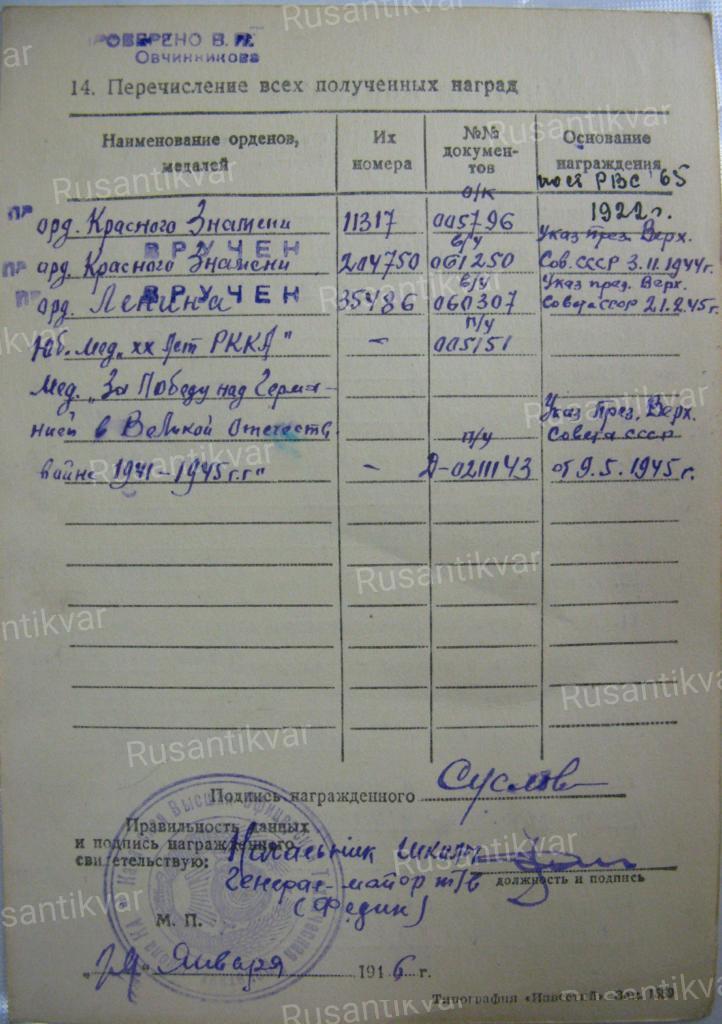 Rusantikvar
РОВЕРЕНО В. П.
Овчинникова
14. Перечисление всех полученных наград
Наименование орденов, медалей
Их номера
№№ докумен-тов
Основание награждения
пост РВС 65
1922 г.
о/к
пр орд. Красного Знамени 11317 005796
ВРУЧЕН
в/у
Указ през. Верх.
пр орд. Красного Знамени 204750 061250 Сов. СССР 3.11.1944г.
ВРУЧЕН
в/у
Указ през. Верх.
пр орд. Ленина 35486 060307 Совета СССР 21.2.45г.
п/у
Юб. мед. „XX лет РККА" - 005151
Мед. „За Победу над Герма-
нией в Великой Отечеств. Указ През. Верх.
п/у
Совета СССР
войне 1941–1945 г.г" - Д-0211143 от 9.5.1945г.
Подпись награжденного Суслов
Правильность данных
и подпись награжденного
свидетельствую:
Начальник школы
генерал-майор т/в
(Федин)
должность и подпись
М. П.
Января 1946 г.
Типография «Известий» Зак 189
Rusantikvar